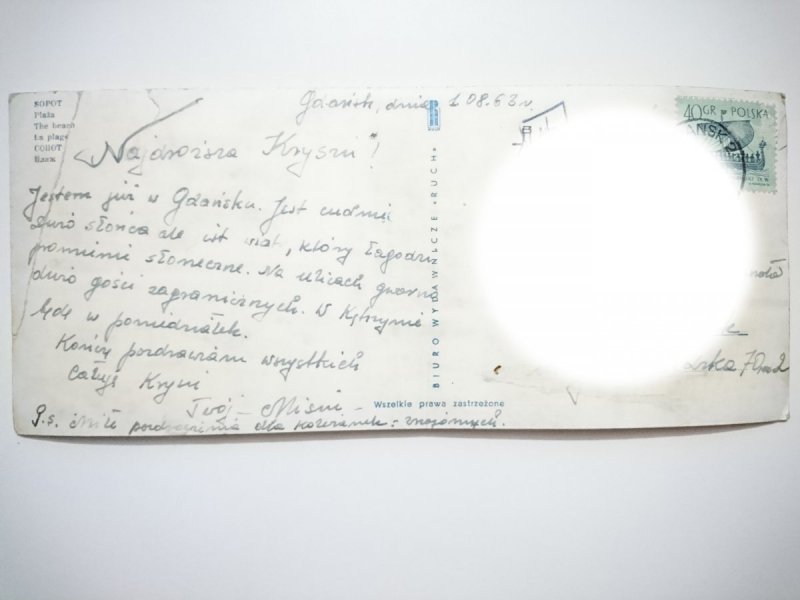 SOPOT
Plaża
The beach
La plage
СОПОТ
Пляж
Gdańsk, dnia 1.08.63 r.
Najdroższa Krysiu!
Jestem już w Gdańsku. Jest cudnie
dużo słońca ale jest wiatr, który łagodzi
promienie słoneczne. Na ulicach gwarno
dużo gości zagranicznych. W Kętrzynie
będę w poniedziałek.
Kończę pozdrawiam wszystkich
Całuję
Twój - Misiu -
P.s. Miłe pozdrowienia dla koleżanek i znajomych.
BIURO WYDAWNICZE «RUCH»
RUCH
Wszelkie prawa zastrzeżone
40 GR POLSKA